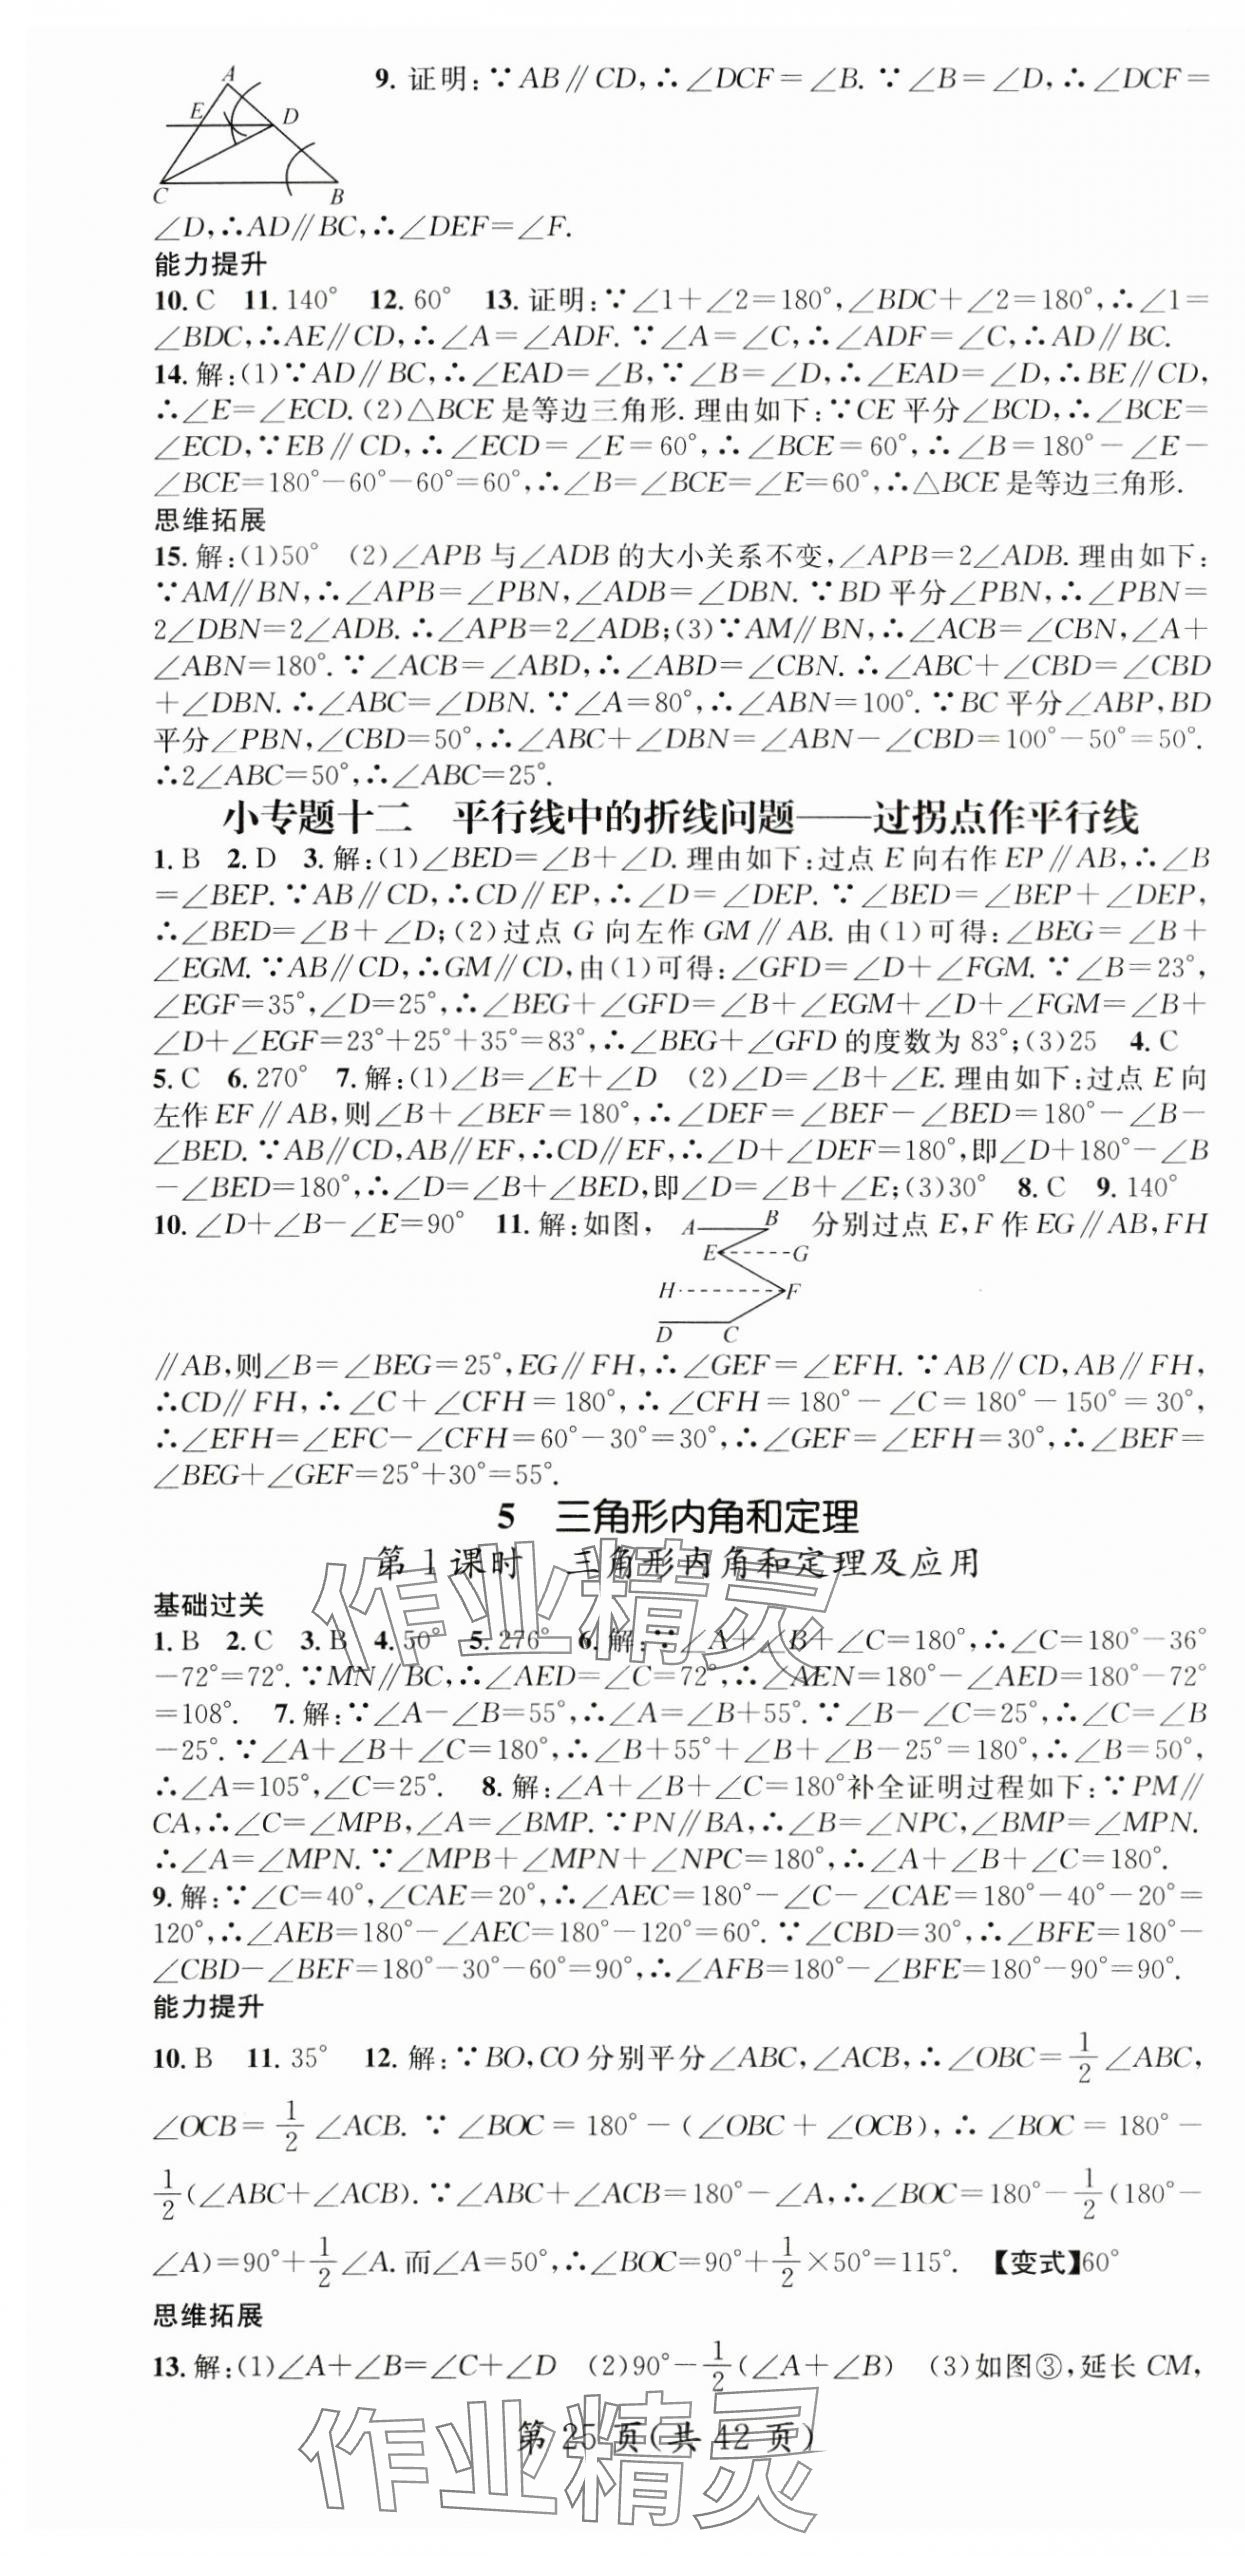 A
E
D
C
B
9. 证明:∵AB∥CD,∴∠DCF=∠B.∵∠B=∠D,∴∠DCF=
∠D,∴AD∥BC,∴∠DEF=∠F.
能力提升
10. C 11. 140° 12. 60° 13. 证明:∵∠1+∠2=180°,∠BDC+∠2=180°,∴∠1=
∠BDC,∴AE∥CD,∴∠A=∠ADF.∵∠A=∠C,∴∠ADF=∠C,∴AD∥BC.
14. 解:(1)∵AD∥BC,∴∠EAD=∠B,∵∠B=∠D,∴∠EAD=∠D,∴BE∥CD,
∴∠E=∠ECD.(2)△BCE是等边三角形.理由如下:∵CE平分∠BCD,∴∠BCE=
∠ECD,∵EB∥CD,∴∠ECD=∠E=60°,∴∠BCE=60°,∴∠B=180°-∠E-
∠BCE=180°-60°-60°=60°,∴∠B=∠BCE=∠E=60°,∴△BCE是等边三角形.
思维拓展
15. 解:(1)50° (2)∠APB与∠ADB的大小关系不变,∠APB=2∠ADB.理由如下:
∵AM∥BN,∴∠APB=∠PBN,∠ADB=∠DBN.∵BD平分∠PBN,∴∠PBN=
2∠DBN=2∠ADB.∴∠APB=2∠ADB;(3)∵AM∥BN,∴∠ACB=∠CBN,∠A+
∠ABN=180°.∵∠ACB=∠ABD,∴∠ABD=∠CBN.∴∠ABC+∠CBD=∠CBD
+∠DBN.∴∠ABC=∠DBN.∵∠A=80°,∴∠ABN=100°.∵BC平分∠ABP,BD
平分∠PBN,∠CBD=50°,∴∠ABC+∠DBN=∠ABN-∠CBD=100°-50°=50°.
∴2∠ABC=50°,∴∠ABC=25°.
小专题十二 平行线中的折线问题——过拐点作平行线
1. B 2. D 3. 解:(1)∠BED=∠B+∠D.理由如下:过点E向右作EP∥AB,∴∠B
=∠BEP.∵AB∥CD,∴CD∥EP,∴∠D=∠DEP.∵∠BED=∠BEP+∠DEP,
∴∠BED=∠B+∠D;(2)过点G向左作GM∥AB.由(1)可得:∠BEG=∠B+
∠EGM.∵AB∥CD,∴GM∥CD,由(1)可得:∠GFD=∠D+∠FGM.∵∠B=23°,
∠EGF=35°,∠D=25°,∴∠BEG+∠GFD=∠B+∠EGM+∠D+∠FGM=∠B+
∠D+∠EGF=23°+25°+35°=83°,∴∠BEG+∠GFD的度数为83°;(3)25 4. C
5. C 6. 270° 7. 解:(1)∠B=∠E+∠D (2)∠D=∠B+∠E.理由如下:过点E向
左作EF∥AB,则∠B+∠BEF=180°,∴∠DEF=∠BEF-∠BED=180°-∠B-
∠BED.∵AB∥CD,AB∥EF,∴CD∥EF,∴∠D+∠DEF=180°,即∠D+180°-∠B
-∠BED=180°,∴∠D=∠B+∠BED,即∠D=∠B+∠E;(3)30° 8. C 9. 140°
10. ∠D+∠B-∠E=90° 11. 解:如图, 分别过点E,F作EG∥AB,FH
A B
E G
H F
D C
∥AB,则∠B=∠BEG=25°,EG∥FH,∴∠GEF=∠EFH.∵AB∥CD,AB∥FH,
∴CD∥FH,∴∠C+∠CFH=180°,∴∠CFH=180°-∠C=180°-150°=30°,
∴∠EFH=∠EFC-∠CFH=60°-30°=30°,∴∠GEF=∠EFH=30°,∴∠BEF=
∠BEG+∠GEF=25°+30°=55°.
5 三角形内角和定理
第1课时 三角形内角和定理及应用
基础过关
1. B 2. C 3. B 4. 50° 5. 276° 6. 解:∵∠A+∠B+∠C=180°,∴∠C=180°-36°
-72°=72°.∵MN∥BC,∴∠AED=∠C=72°,∴∠AEN=180°-∠AED=180°-72°
=108°. 7. 解:∵∠A-∠B=55°,∴∠A=∠B+55°.∵∠B-∠C=25°,∴∠C=∠B
-25°.∵∠A+∠B+∠C=180°,∴∠B+55°+∠B+∠B-25°=180°,∴∠B=50°,
∴∠A=105°,∠C=25°. 8. 解:∠A+∠B+∠C=180°补全证明过程如下:∵PM∥
CA,∴∠C=∠MPB,∠A=∠BMP.∵PN∥BA,∴∠B=∠NPC,∠BMP=∠MPN.
∴∠A=∠MPN.∵∠MPB+∠MPN+∠NPC=180°,∴∠A+∠B+∠C=180°.
9. 解:∵∠C=40°,∠CAE=20°,∴∠AEC=180°-∠C-∠CAE=180°-40°-20°=
120°,∴∠AEB=180°-∠AEC=180°-120°=60°.∵∠CBD=30°,∴∠BFE=180°-
∠CBD-∠BEF=180°-30°-60°=90°,∴∠AFB=180°-∠BFE=180°-90°=90°.
能力提升
10. B 11. 35° 12. 解:∵BO,CO分别平分∠ABC,∠ACB,∴∠OBC=1/2∠ABC,
∠OCB=1/2∠ACB.∵∠BOC=180°-(∠OBC+∠OCB),∴∠BOC=180°-
1/2(∠ABC+∠ACB).∵∠ABC+∠ACB=180°-∠A,∴∠BOC=180°-1/2(180°-
∠A)=90°+1/2∠A.而∠A=50°,∴∠BOC=90°+1/2×50°=115°. 【变式】60°
思维拓展
13. 解:(1)∠A+∠B=∠C+∠D (2)90°-1/2(∠A+∠B) (3)如图③,延长CM,
第25页(共42页)
作业精灵
作业精灵